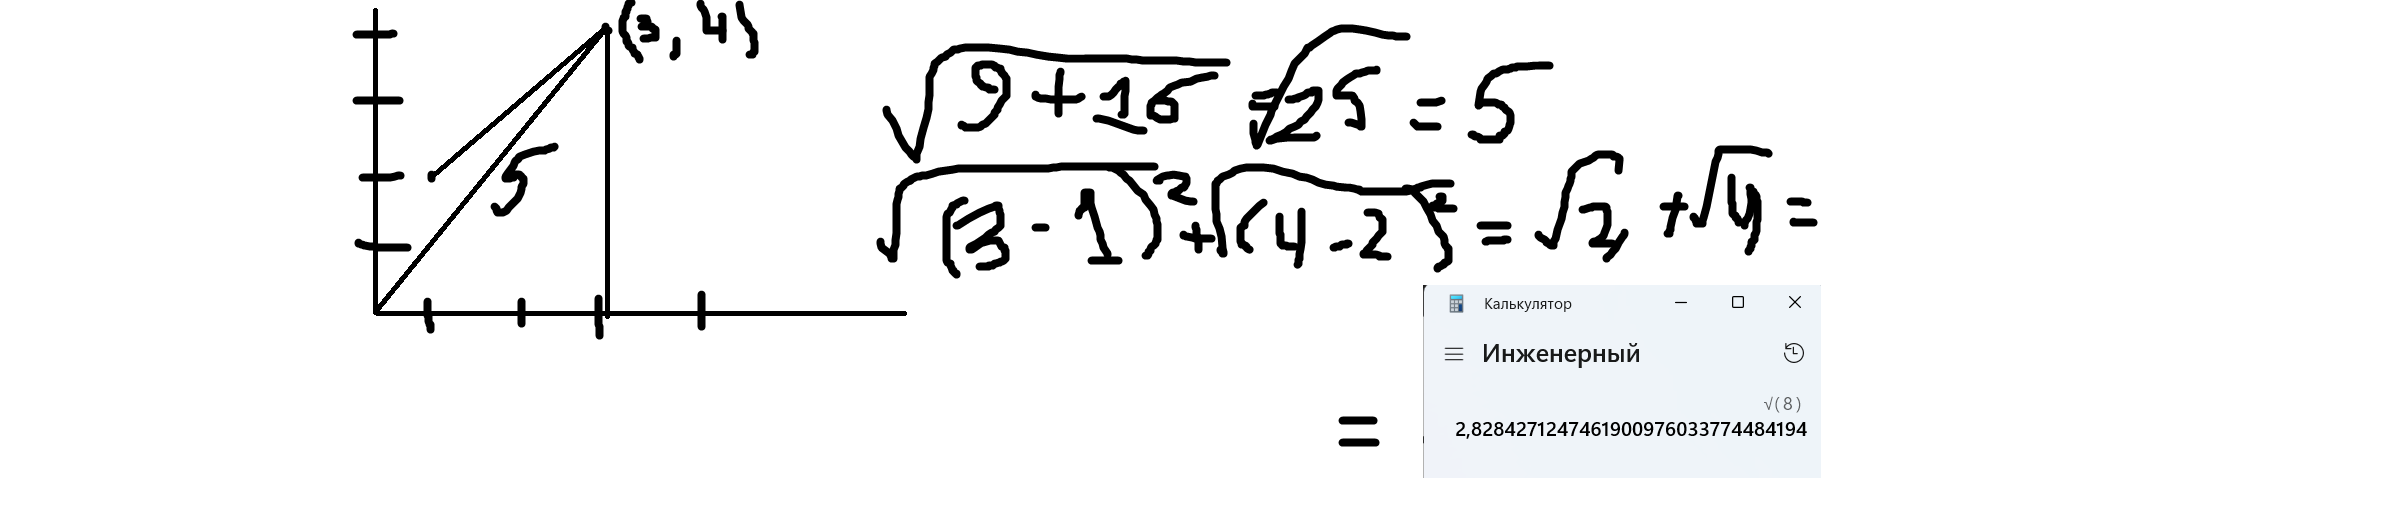 (3, 4)
√9 + 16 = √25 = 5
5
√(3 - 1)² + √(4 - 2)² = √2 + √4 =
Калькулятор
Инженерный
√(8)
= 2,8284271247461900976033774484194